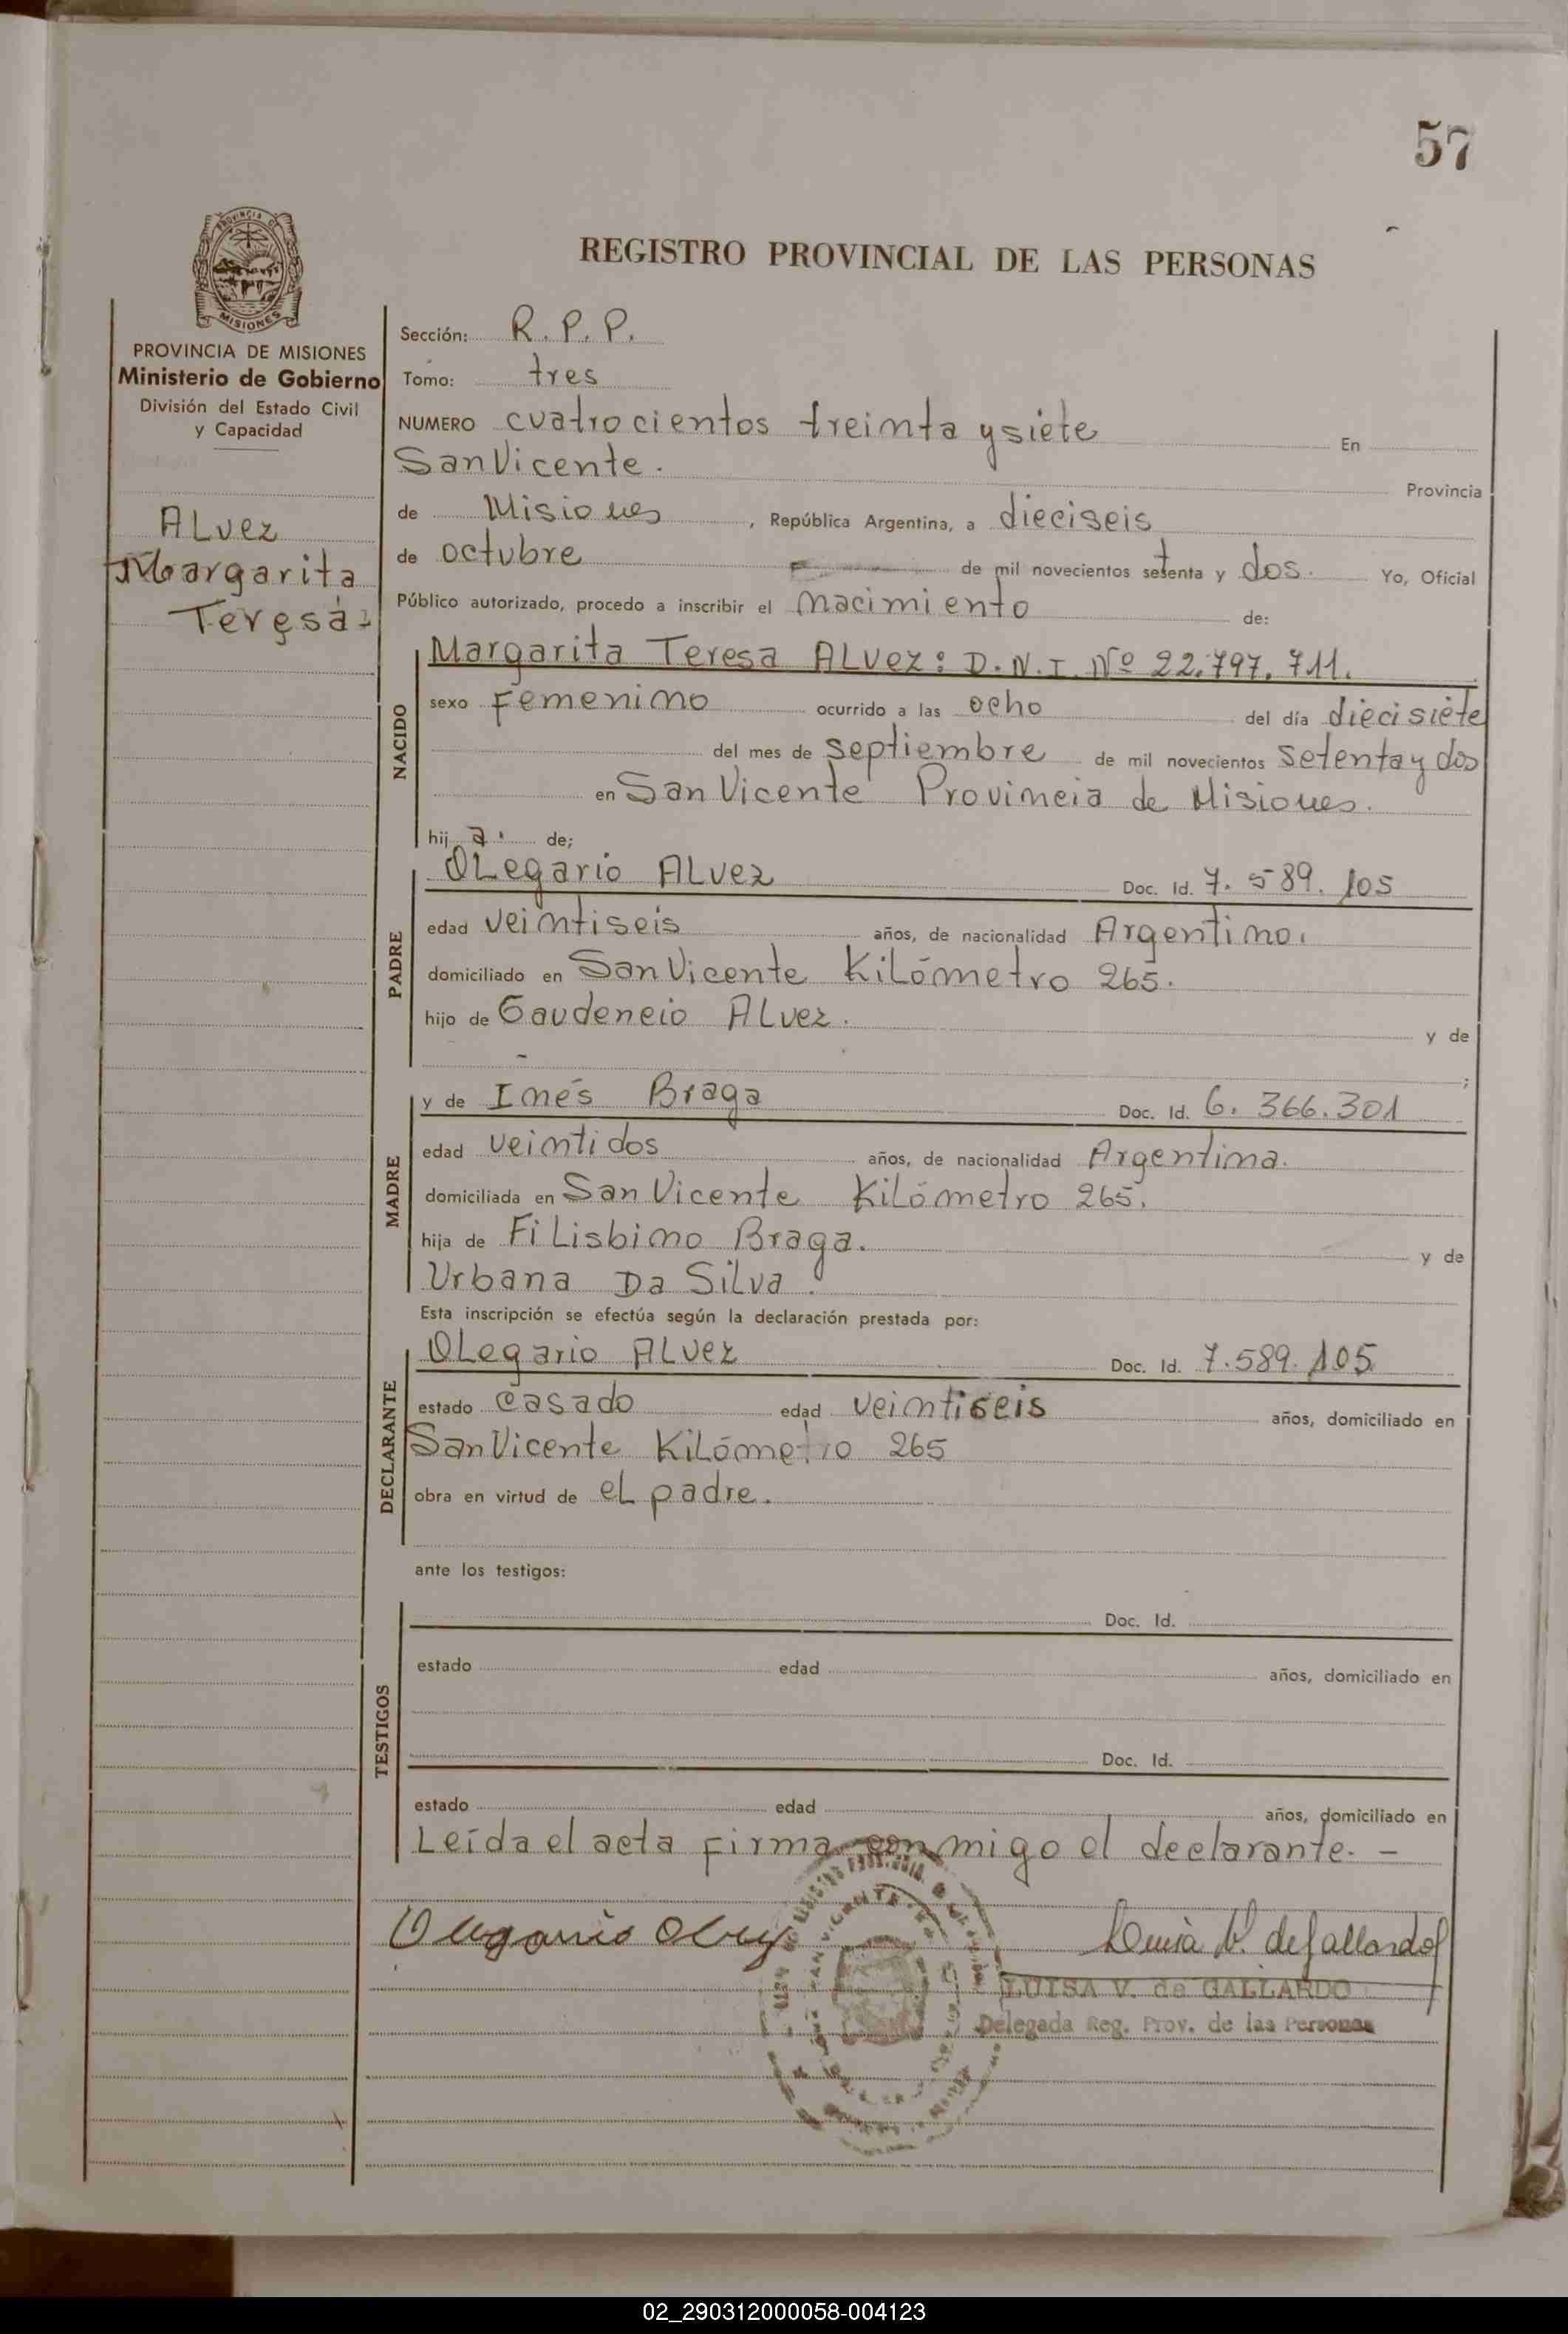 57
PROVINCIA DE
MISIONES
REGISTRO PROVINCIAL DE LAS PERSONAS
PROVINCIA DE MISIONES
Ministerio de Gobierno
División del Estado Civil
y Capacidad
ALvez
Margarita
Teresa
Sección: R.P.P.
Tomo: tres
NUMERO cuatrocientos treinta y siete En
San Vicente. Provincia
de Misiones, República Argentina, a dieciseis
de octubre de mil novecientos setenta y dos. Yo, Oficial
Público autorizado, procedo a inscribir el nacimiento de:
NACIDO
Margarita Teresa ALvez: D.N.I. Nº 22.797.711.
sexo Femenino ocurrido a las ocho del día diecisiete
del mes de septiembre de mil novecientos setenta y dos
en San Vicente Provincia de Misiones.
hija. de;
PADRE
OLegario ALvez Doc. Id. 7.589.105
edad veintiseis años, de nacionalidad Argentino.
domiciliado en San Vicente KiLómetro 265.
hijo de Gaudencio ALvez. y de
;
MADRE
y de Inés Braga Doc. Id. 6.366.301
edad veintidos años, de nacionalidad Argentina.
domiciliada en San Vicente KiLómetro 265.
hija de FiLisbino Braga. y de
Urbana Da SiLva.
Esta inscripción se efectúa según la declaración prestada por:
DECLARANTE
OLegario ALvez Doc. Id. 7.589.105
estado casado edad veintiseis años, domiciliado en
San Vicente KiLómetro 265
obra en virtud de eL padre.
ante los testigos:
TESTIGOS
Doc. Id.
estado edad años, domiciliado en
Doc. Id.
estado edad años, domiciliado en
Leída el acta firma conmigo el declarante. -
Olegario Alvez Luisa V. de Gallardo
LUISA V. de GALLARDO
Delegada Reg. Prov. de las Personas
02_290312000058-004123